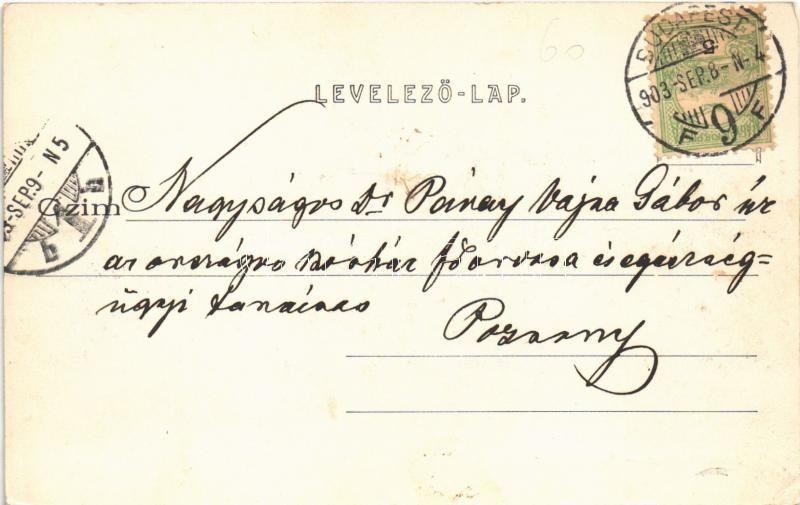 60
BUDAPEST
5
903-SEP.8-N-4
9
F F
LEVELEZŐ-LAP.
SEP.9-N5
Czim Nagyságos Dr Pávay Vajna Gábor úr
az országos kórház főorvosa és egészség-
ügyi tanácsos
Pozsony